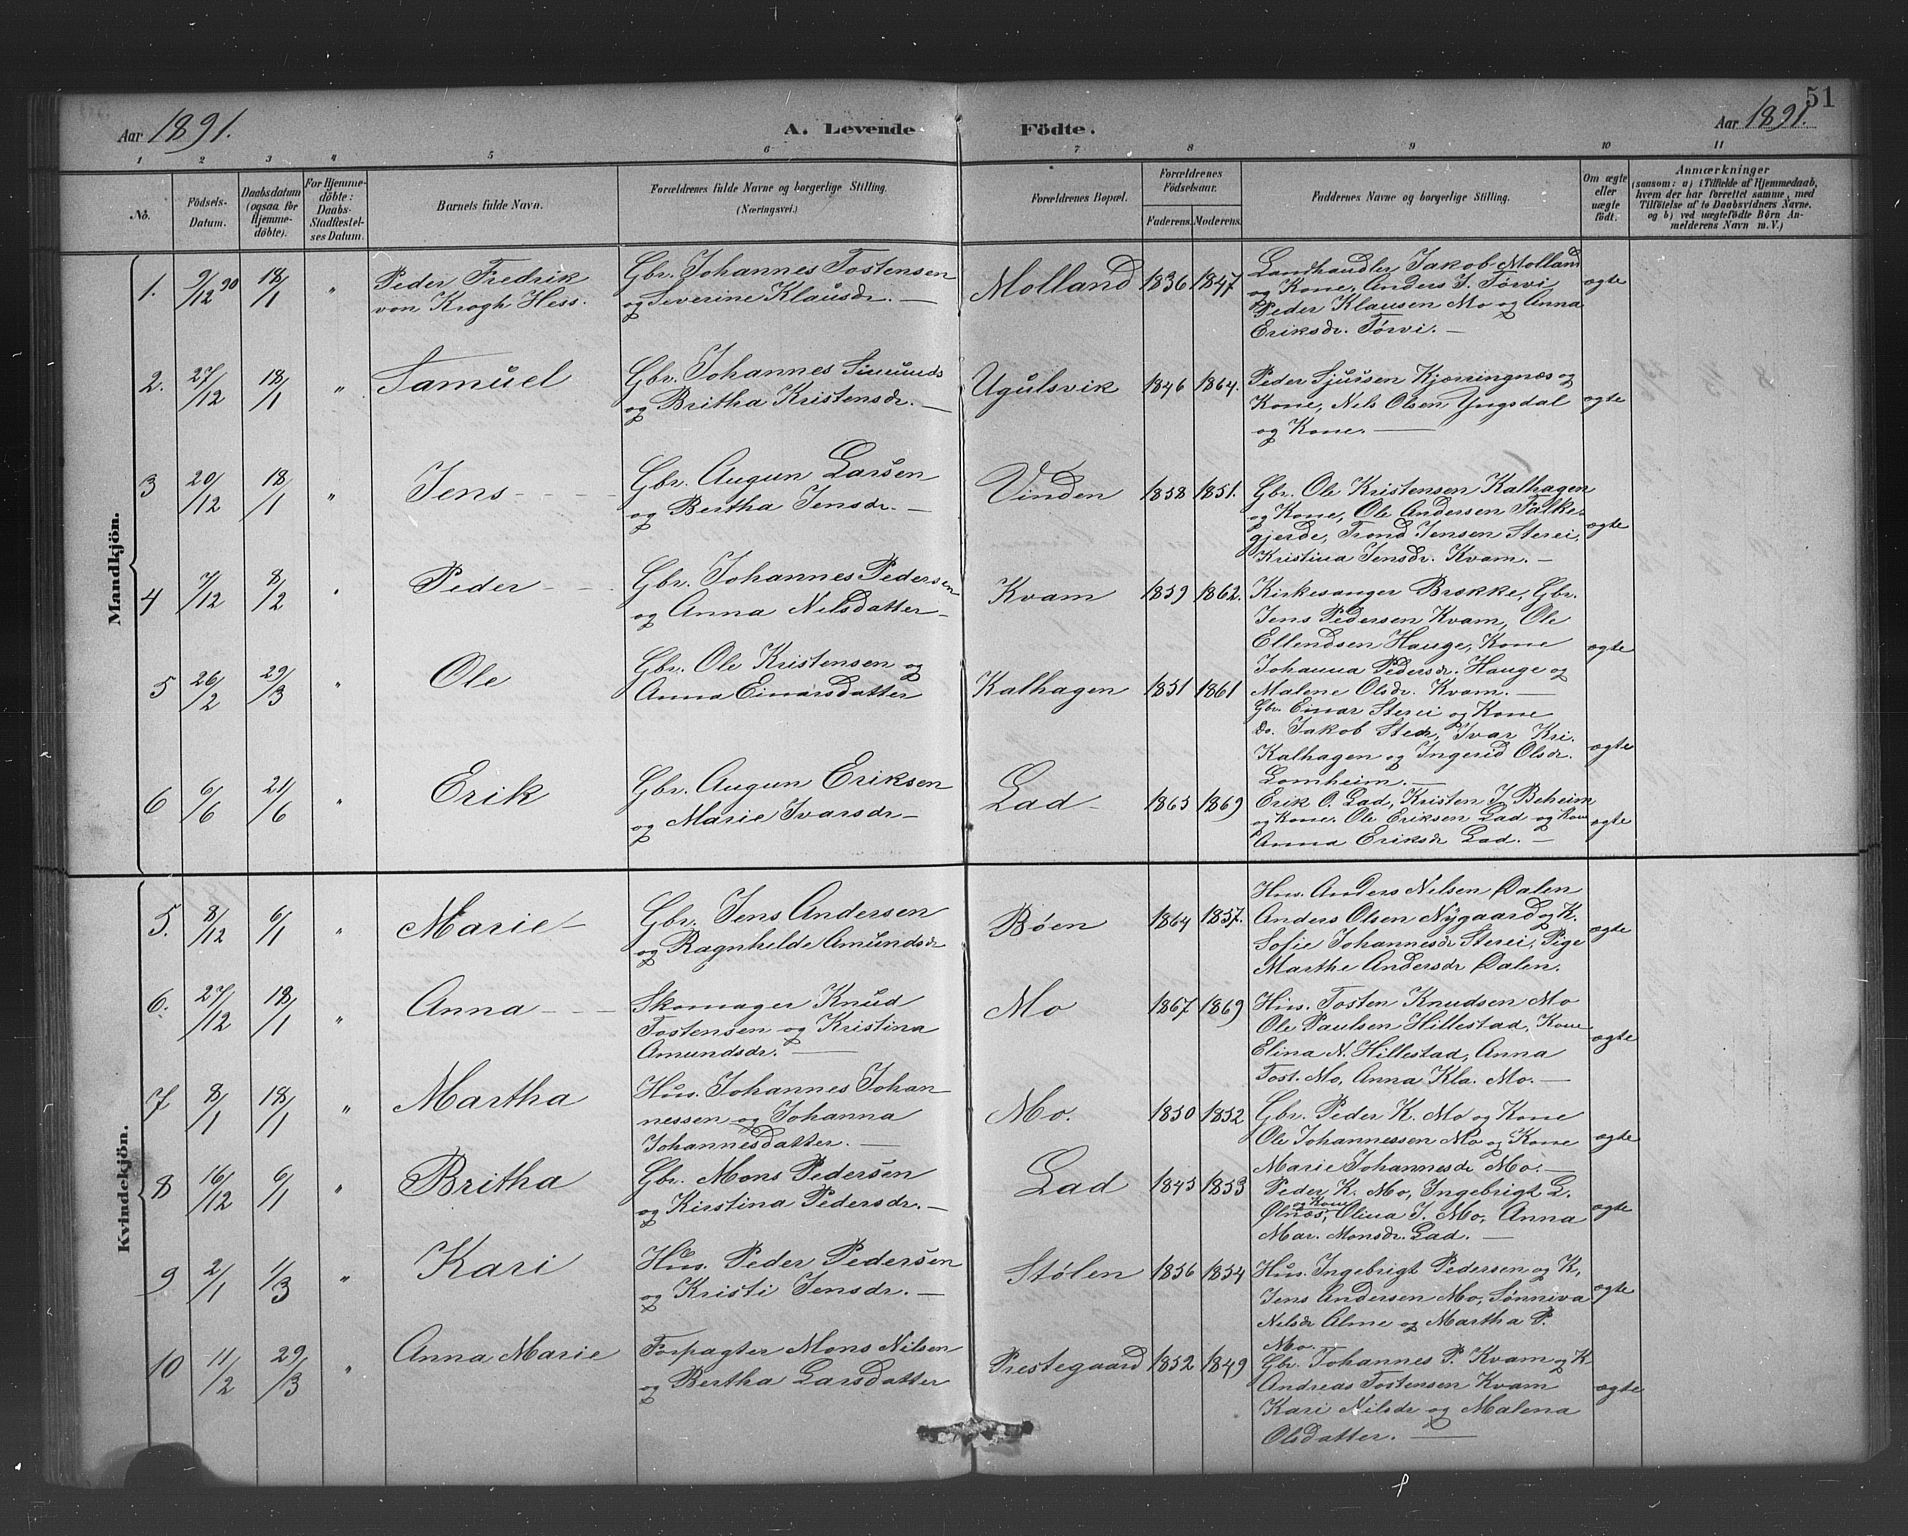 51
Aar 1891. A. Levende Födte. Aar 1891.
1 2 3 4 5 6 7 8 9 10 11
No.
Födsels-Datum.
Daabsdatum (ogsaa for Hjemme-döbte).
For Hjemme-döbte: Daabs-Stadfæstel-ses Datum.
Barnets fulde Navn.
Forældrenes fulde Navne og borgerlige Stilling.
(Næringsvei.)
Forældrenes Bopæl.
Forældrenes Födselsaar.
Faderens. Moderens.
Faddernes Navne og borgerlige Stilling.
Om ægte eller uægte födt.
Anmærkninger
(saasom: a) i Tilfælde af Hjemmedaab,
hvem der har forrettet samme, med
Tilföielse af to Daabsvidners Navne,
og b) ved uægtefödte Börn An-
melderens Navn m. V.)
Mandkjön.
1. 9/12 90 18/1 " Peder Fredrik
von Krogh Hess.
Gbr. Johannes Tostensen
og Severine Klausdr. —
Molland 1836 1847
Landhandler Jakob Molland
og Kone, Anders J. Tørvi
Peder Klausen Mo og Anna
Eriksdr. Tørvi. —
ægte
2. 27/12 18/1 " Samuel
Gbr. Johannes Simunds
og Britha Kristensdr. —
Ugulsvik 1846 1864.
Peder Sjursen Kjørringnæs og
Kone, Nils Olsen Yngsdal
og Kone. —
ægte
3 20/12 18/1 " Jens
Gbr. Augun Larsen
og Bertha Jensdr. —
Vinden 1858 1851.
Gbr. Ole Kristensen Kalhagen
og Kone, Ole Andersen Falke-
gjerde, Trond Jensen Sterei,
Kristina Jensdr. Kvam. —
ægte
4 7/12 8/2 " Peder
Gbr. Johannes Pedersen
og Anna Nilsdatter —
Kvam 1859 1862.
Kirkesanger Brække, Gbr.
Jens Pedersen Kvam, Ole
Ellendsen Hauge, Kone
Johanna Pedersdr. Hauge og
Malene Olsdr. Kvam. —
ægte
5 26/2 29/3 " Ole
Gbr. Ole Kristensen og
Anna Einarsdatter
Kalhagen 1851 1861
Gbr. Einar Sterei og Kone
Do. Jakob Ster, Ivar Kri.
Kalhagen og Ingerid Olsdr.
Lomheim. —
ægte
6 6/6 21/6 " Erik
Gbr. Augun Eriksen
og Marie Ivarsdr —
Lad 1865 1869
Erik O. Lad, Kristen J. Beheim
og Kone. Ole Eriksen Lad og Kone
Anna Eriksdr Lad. —
ægte
Kvindekjön.
5. 8/12 6/1 " Marie —
Gbr. Jens Andersen
og Ragnhilde Amundsdr
Bøen 1864 1857.
Hus. Anders Nilsen Dalen
Anders Olsen Nygaard og K.
Sofie Johannesdr Sterei, Pige
Marthe Andersdr Dalen.
ægte
6. 27/12 18/1 " Anna
Skomager Knud
Tostensen og Kristina
Amundsdr. —
Mo 1867 1869
Hus. Tosten Knudsen Mo
Ole Paulsen Hillestad, Kone
Elina N. Hillestad, Anna
Tost. Mo, Anna Kla. Mo. —
ægte
7 8/1 18/1 " Martha
Hus. Johannes Johan
nessen og Johanna
Johannesdatter. —
Mo. 1850 1852
Gbr. Peder K. Mo og Kone
Ole Johannessen Mo og Kone
Marie Johannesdr Mo. —
ægte
8 16/12 6/1 " Britha
Gbr. Mons Pedersen
og Kirstina Pedersdr. —
Lad 1845 1853
Peder K. Mo, Ingebrigt L.
Ølnæs, og Kone Olina J. Mo, Anna
Mar. Monsdr. Lad. —
ægte
9 2/1 1/3 " Kari
Hus. Peder Pedersen
og Kristi Jensdr. —
Stølen 1856 1854
Hus. Ingebrigt Pedersen og K,
Jens Andersen Mo, Sønniva
Nilsdr Alme og Martha P.
Mo.
ægte
10 11/2 29/3 " Anna Marie
Forpagter Mons Nilsen
og Bertha Larsdatter
Prestegaard 1852 1849
Gbr. Johannes P. Kvam og K
Andreas Tostensen Kvam
Kari Nilsdr og Malena
Olsdatter. —
ægte